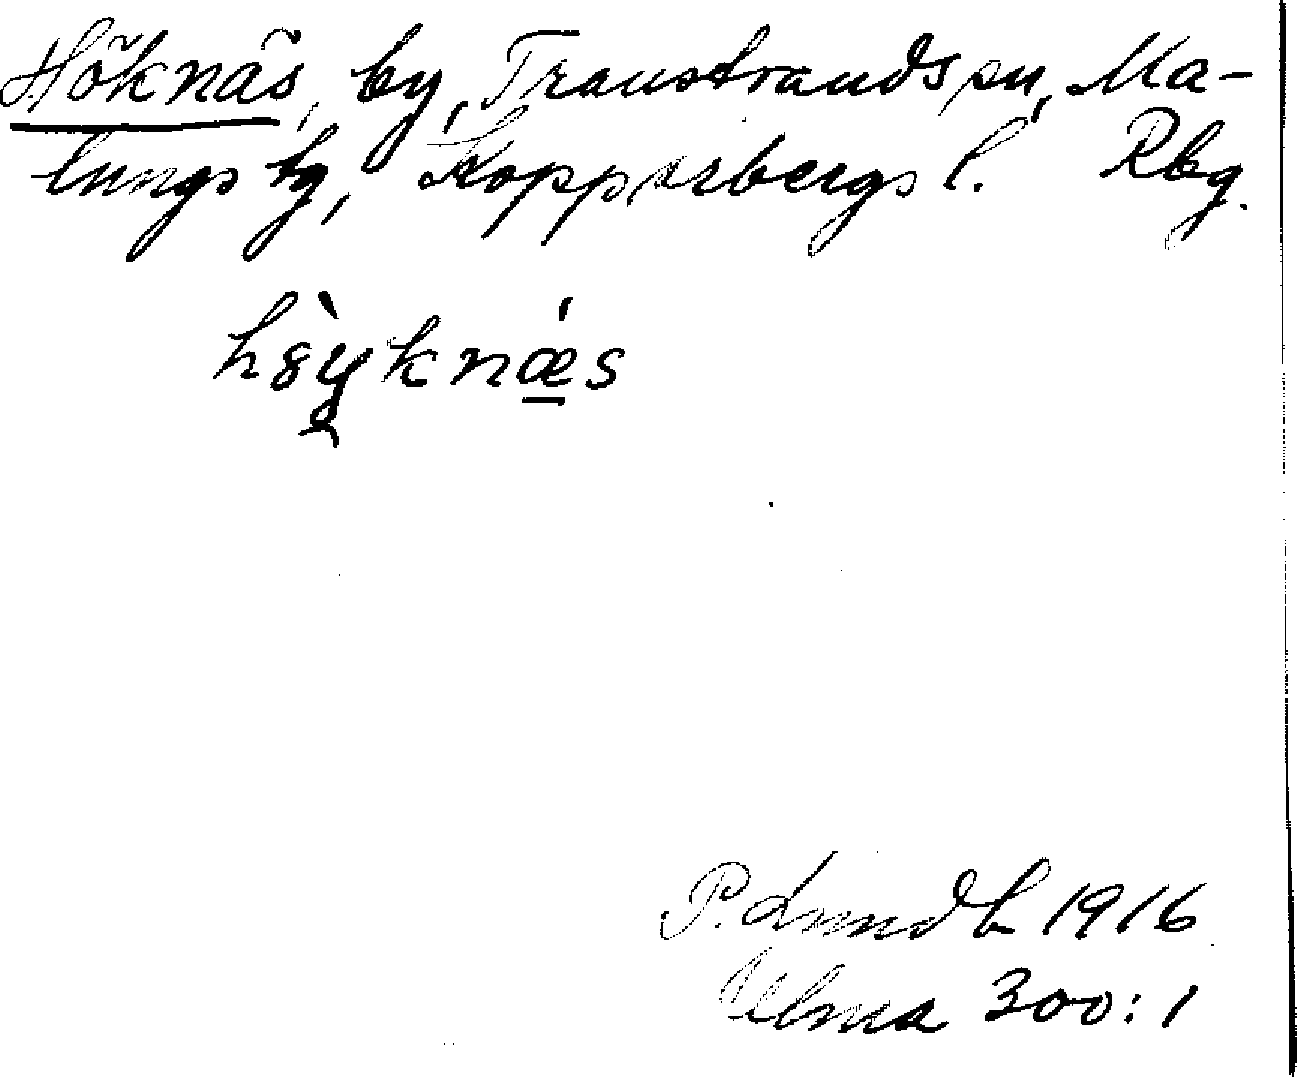 Höknäs, by, Transtrands sn, Ma-
lungs tg, Kopparbergs l. Rbg.
P. Lindb 1916
Ulma 300:1